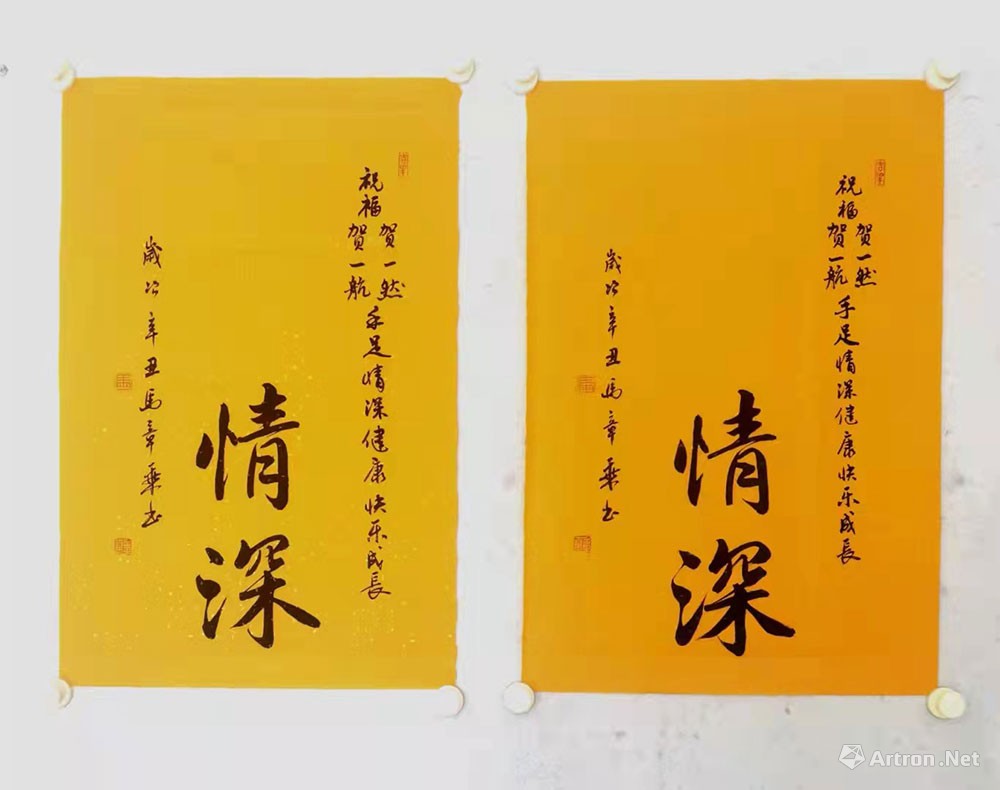 祝福
贺一然
贺一航
手足情深健康快乐成長
情深
歲次辛丑馬章乘书
祝福
贺一然
贺一航
手足情深健康快乐成長
情深
歲次辛丑馬章乘书
Artron.Net